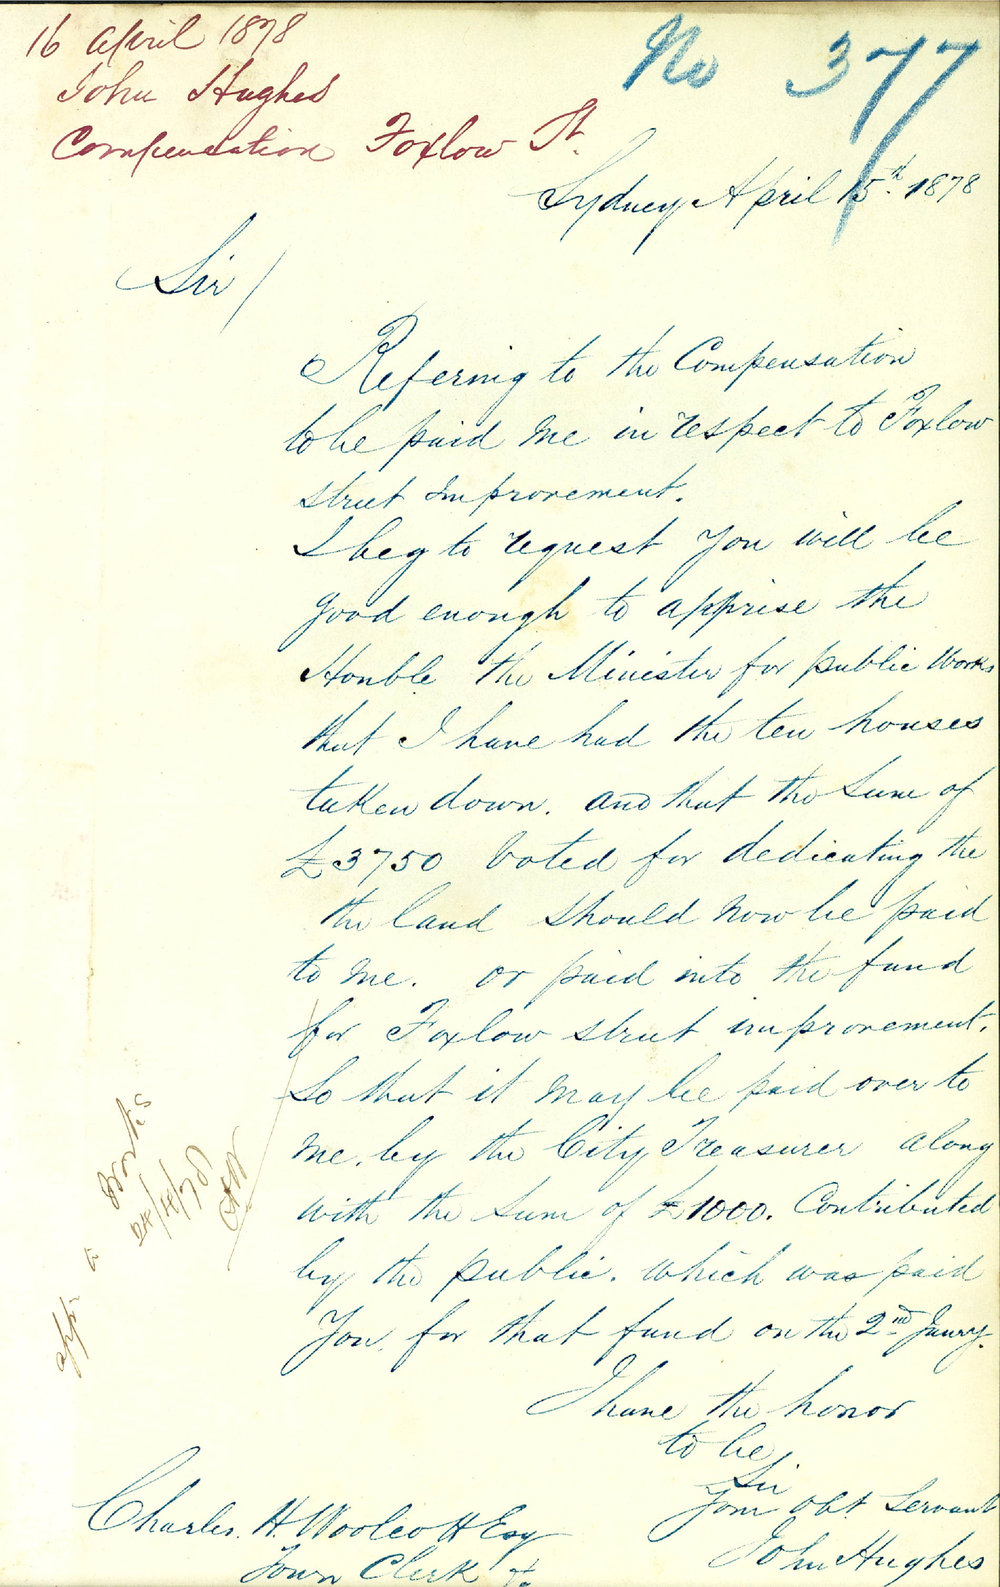 16 April 1878
John Hughes
Compensation Foxlow St.
No 377
Sydney April 15th. 1878
Sir/
Refering to the Compensation
to be paid me in respect to Foxlow
street improvement.
I beg to request you will be
good enough to apprise the
Honble the Minister for public Works
that I have had the ten houses
taken down. and that the Sum of
£3750 Voted for dedicating the
the land should now be paid
to me. or paid into the fund
for Foxlow street improvement.
So that it may be paid over to
me. by the City Treasurer along
with the sum of £1000. Contributed
by the public. which was paid
You, for that fund on the 2nd Janry.
I have the honor
to be
Sir
Your Obt. Servant
John Hughes
Charles. H. Woolcott Esq
Town Clerk
Works
24/4/78